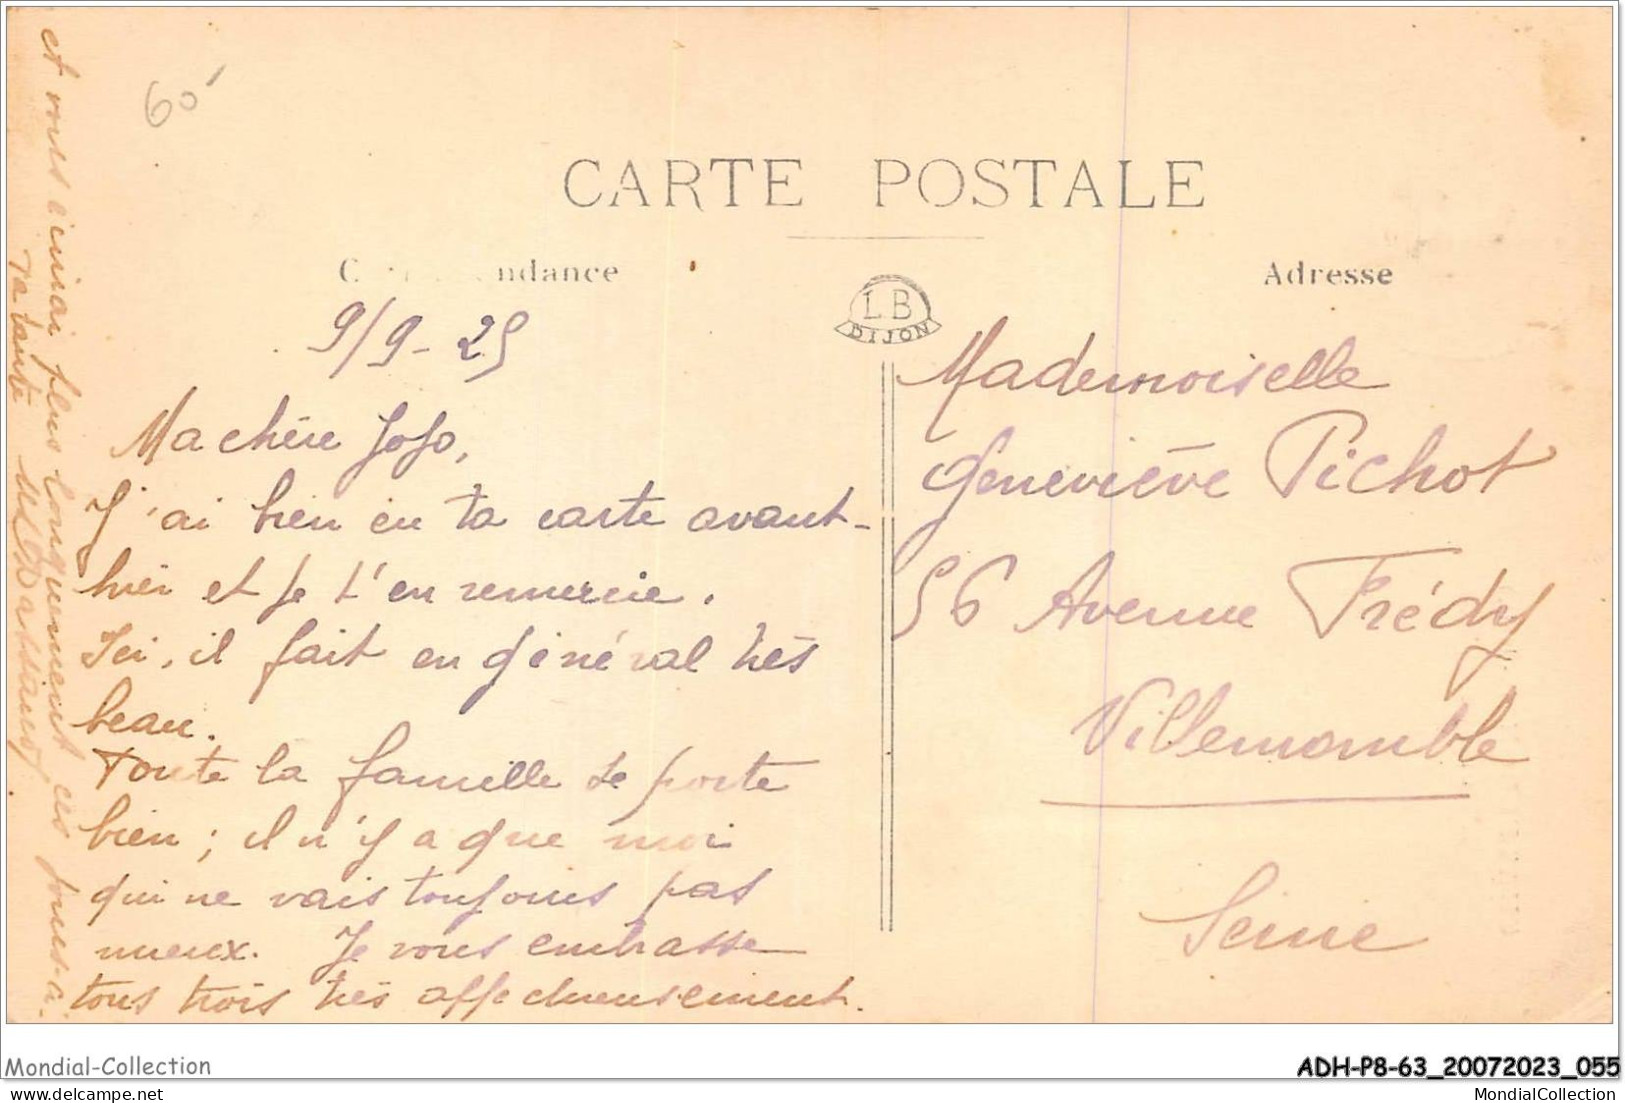 60
CARTE POSTALE
Correspondance
Adresse
LB
DIJON
9/9-25
Ma chère Jojo,
J'ai bien eu ta carte avant-
hier et je t'en remercie.
Ici, il fait en général très
beau.
Toute la famille se porte
bien; il n'y a que moi
qui ne vais toujours pas
mieux. Je vous embrasse
tous trois très affectueusement.
et vous écrirai plus longuement ces jours-ci.
Ta tante
Mademoiselle
Geneviève Pichot
56 Avenue Frédy
Villemomble
Seine
Mondial-Collection
ADH-P8-63_20072023_055
www.delcampe.net
MondialCollection